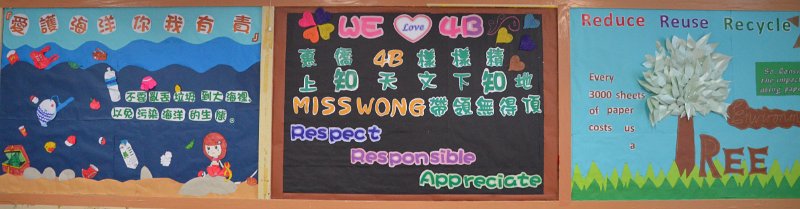 『愛護海洋你我有責』
不要亂丟垃圾 到大海裡,
以免污染海洋的生態。
WE Love 4B
4B 樣樣精
上知天文下知地
MISS WONG 帶領無得頂
Respect
Responsible
Appreciate
Reduce Reuse Recycle
So Consi
the impac
using pape
Every
3000 sheets
of paper
costs us
a
TREE
Environm